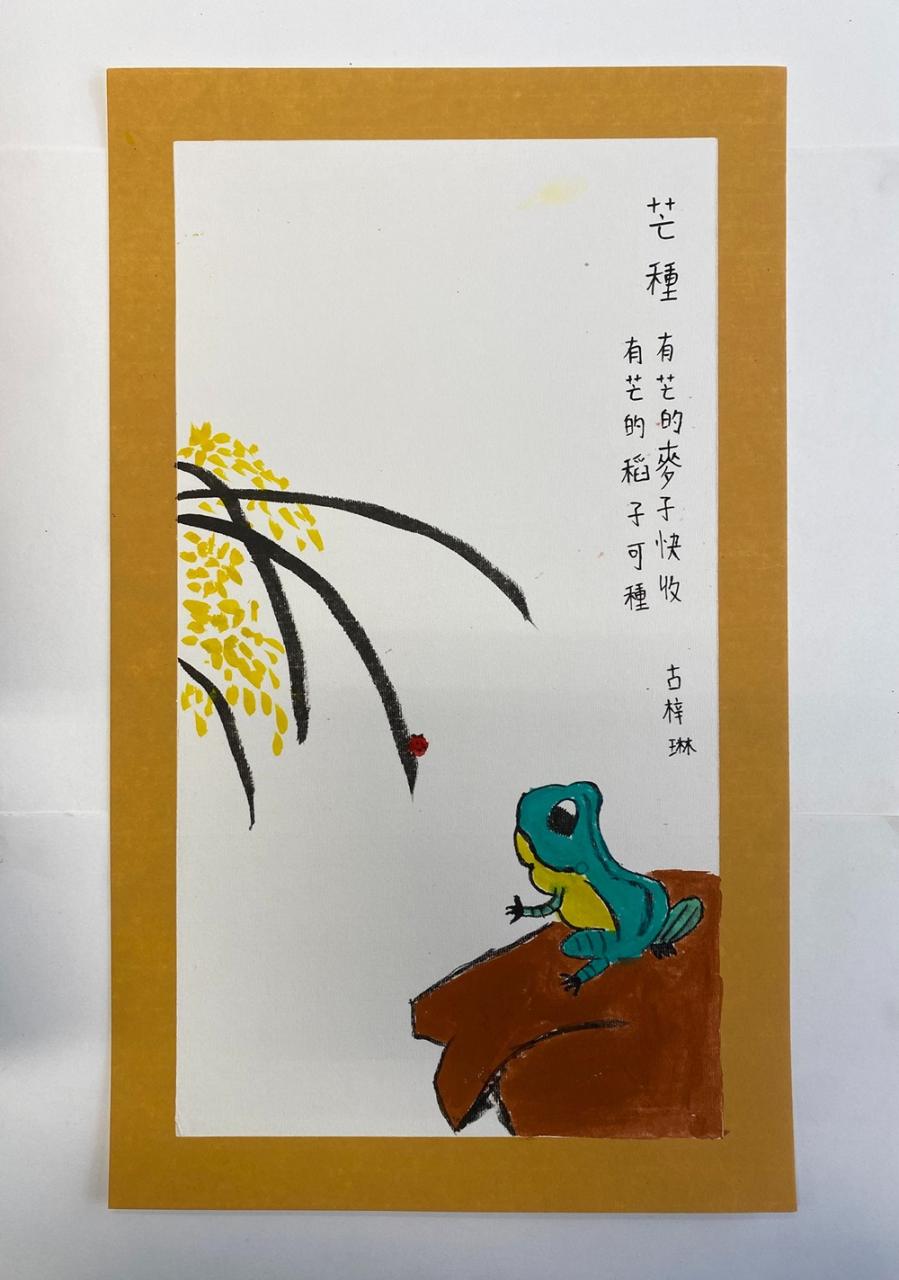 芒種
有芒的麥子快收
有芒的稻子可種
古梓琳